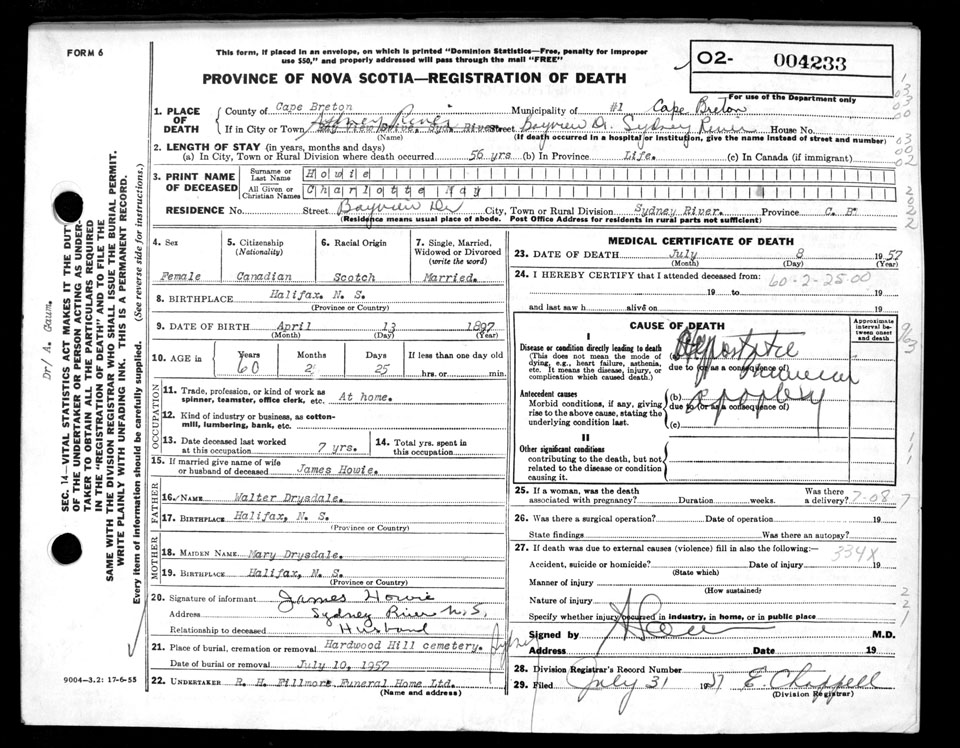 FORM 6
This form, if placed in an envelope, on which is printed "Dominion Statistics—Free, penalty for improper
use $50," and properly addressed will pass through the mail "FREE"
PROVINCE OF NOVA SCOTIA—REGISTRATION OF DEATH
02- 004233
For use of the Department only
1. PLACE OF DEATH
County of Cape Breton Municipality of #1 Cape Breton
If in City or Town Sydney River Street Bayview Dr. Sydney River House No.
(Name) (If death occurred in a hospital or institution, give the name instead of street and number)
2. LENGTH OF STAY (in years, months and days)
(a) In City, Town or Rural Division where death occurred 56 yrs (b) In Province Life. (c) In Canada (if immigrant)
3. PRINT NAME OF DECEASED
Surname or Last Name Howie
All Given or Christian Names Charlotte May
RESIDENCE No. Street Bayview Dr City, Town or Rural Division Sydney River. Province C. B
(Residence means usual place of abode. Post Office Address for residents in rural parts not sufficient)
4. Sex Female
5. Citizenship (Nationality) Canadian
6. Racial Origin Scotch
7. Single, Married, Widowed or Divorced (write the word) Married.
8. BIRTHPLACE Halifax. N. S.
(Province or Country)
9. DATE OF BIRTH April 13 1897
(Month) (Day) (Year)
10. AGE in Years 60 Months 2 Days 25 If less than one day old hrs. or min.
OCCUPATION
11. Trade, profession, or kind of work as
spinner, teamster, office clerk, etc. At home.
12. Kind of industry or business, as cotton-
mill, lumbering, bank, etc.
13. Date deceased last worked
at this occupation 7 yrs.
14. Total yrs. spent in
this occupation
15. If married give name of wife
or husband of deceased James Howie.
FATHER
16. NAME Walter Drysdale.
17. BIRTHPLACE Halifax, N. S.
(Province or Country)
MOTHER
18. MAIDEN NAME Mary Drysdale.
19. BIRTHPLACE Halifax, N. S.
(Province or Country)
20. Signature of informant James Howie
Address Sydney River N.S.
Relationship to deceased Husband
21. Place of burial, cremation or removal Hardwood Hill cemetery. Sydney
Date of burial or removal July 10, 1957
22. UNDERTAKER R. H. Fillmore Funeral Home Ltd.
(Name and address)
9004—3.2: 17-6-55
MEDICAL CERTIFICATE OF DEATH
23. DATE OF DEATH July 8 1957
(Month) (Day) (Year)
24. I HEREBY CERTIFY that I attended deceased from: 60-2-25-00
19 to 19
and last saw h alive on 19
CAUSE OF DEATH
Approximate interval between onset and death
I
Disease or condition directly leading to death
(This does not mean the mode of
dying, e.g., heart failure, asthenia,
etc. It means the disease, injury, or
complication which caused death.)
due to (or as a consequence of)
Antecedent causes
Morbid conditions, if any, giving
rise to the above cause, stating the
underlying condition last.
(b)
due to (or as a consequence of)
apoplexy
(c)
II
Other significant conditions
contributing to the death, but not
related to the disease or condition
causing it.
25. If a woman, was the death
associated with pregnancy? Duration weeks. Was there a delivery?
26. Was there a surgical operation? Date of operation 19
State findings Was there an autopsy?
27. If death was due to external causes (violence) fill in also the following:— 334X
Accident, suicide or homicide? Date of injury 19
(State which)
Manner of injury
(How sustained)
Nature of injury
Specify whether injury occurred in industry, in home, or in public place
Signed by M.D.
Address Date 19
28. Division Registrar's Record Number
29. Filed July 31 1957 E. Chappell
(Division Registrar)
Dr/ A. Gaum.
SEC. 14—VITAL STATISTICS ACT MAKES IT THE DUTY
OF THE UNDERTAKER OR PERSON ACTING AS UNDER-
TAKER TO OBTAIN ALL THE PARTICULARS REQUIRED
IN THE "REGISTRATION OF DEATH" AND TO FILE THE
SAME WITH THE DIVISION REGISTRAR WHO SHALL ISSUE THE BURIAL PERMIT.
WRITE PLAINLY WITH UNFADING INK. THIS IS A PERMANENT RECORD.
Every item of information should be carefully supplied. (See reverse side for instructions.)